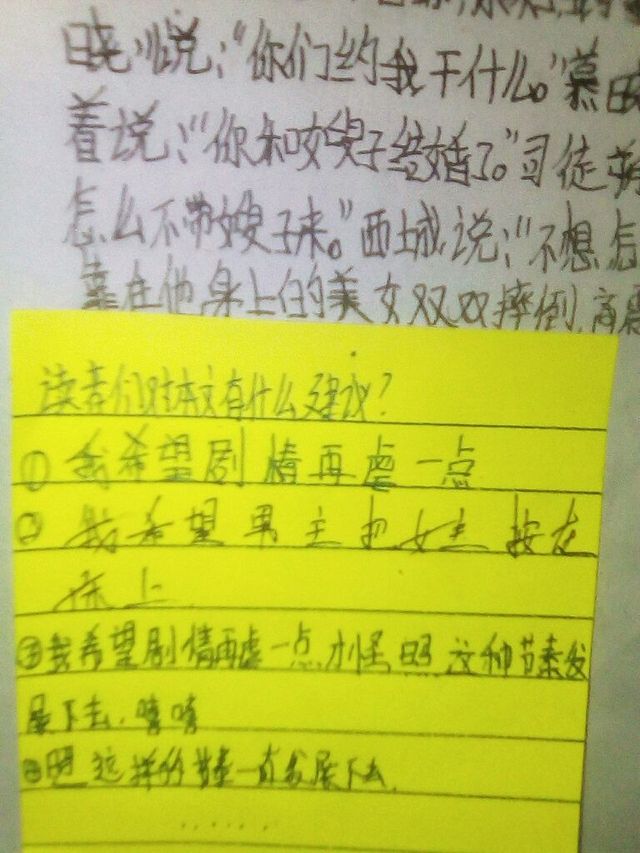 晓川说:“你们约我干什么。”慕
着说:“你和咬嫂子结婚了。”司徒
怎么不带嫂子来。”西城说:“不想
靠在他身上的美女双双摔倒,
读者们对本文有什么建议?
① 我希望剧情再虐一点
② 我希望男主把女主按在
床上
③我希望剧情再虐一点, 照这种节奏发
展下去,嘻嘻
④照这样的节奏一直发展下去.
......